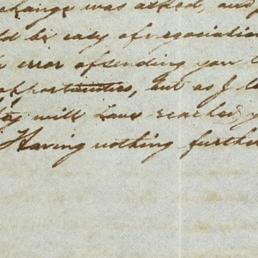 change was asked, and
ld be easy of negociation
error of sending you t
opportunities, but as I
will have reached y
Having nothing further